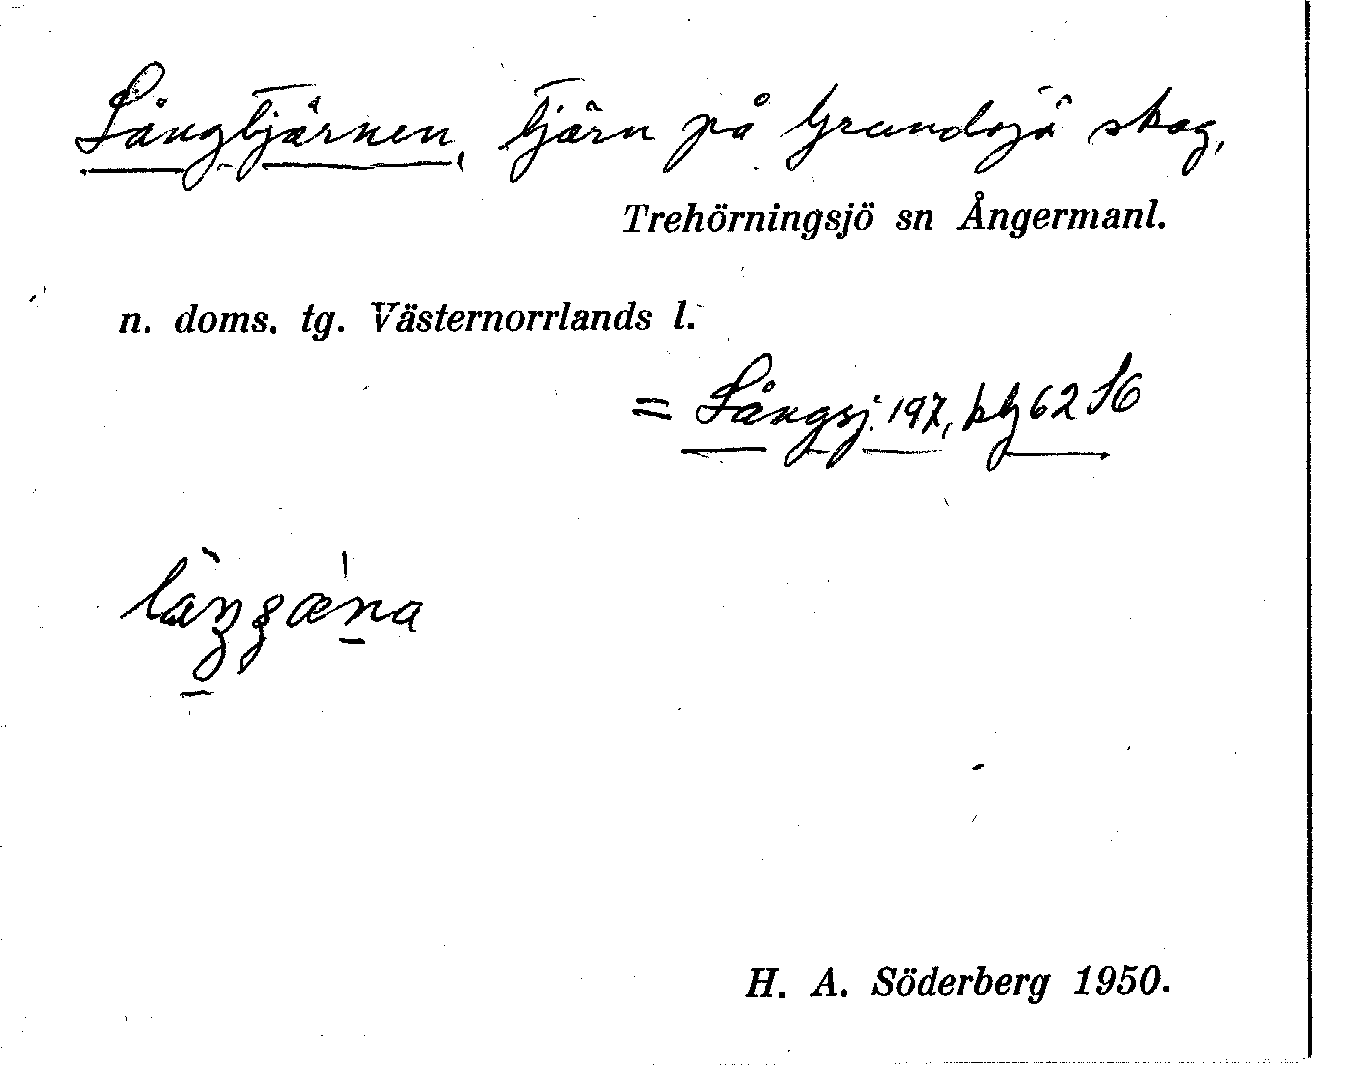 Långtjärnen, tjärn på Grundsjö skog,
Trehörningsjö sn Ångermanl.
n. doms. tg. Västernorrlands l.
= Långsj. 197, kbl 62 S6
H. A. Söderberg 1950.